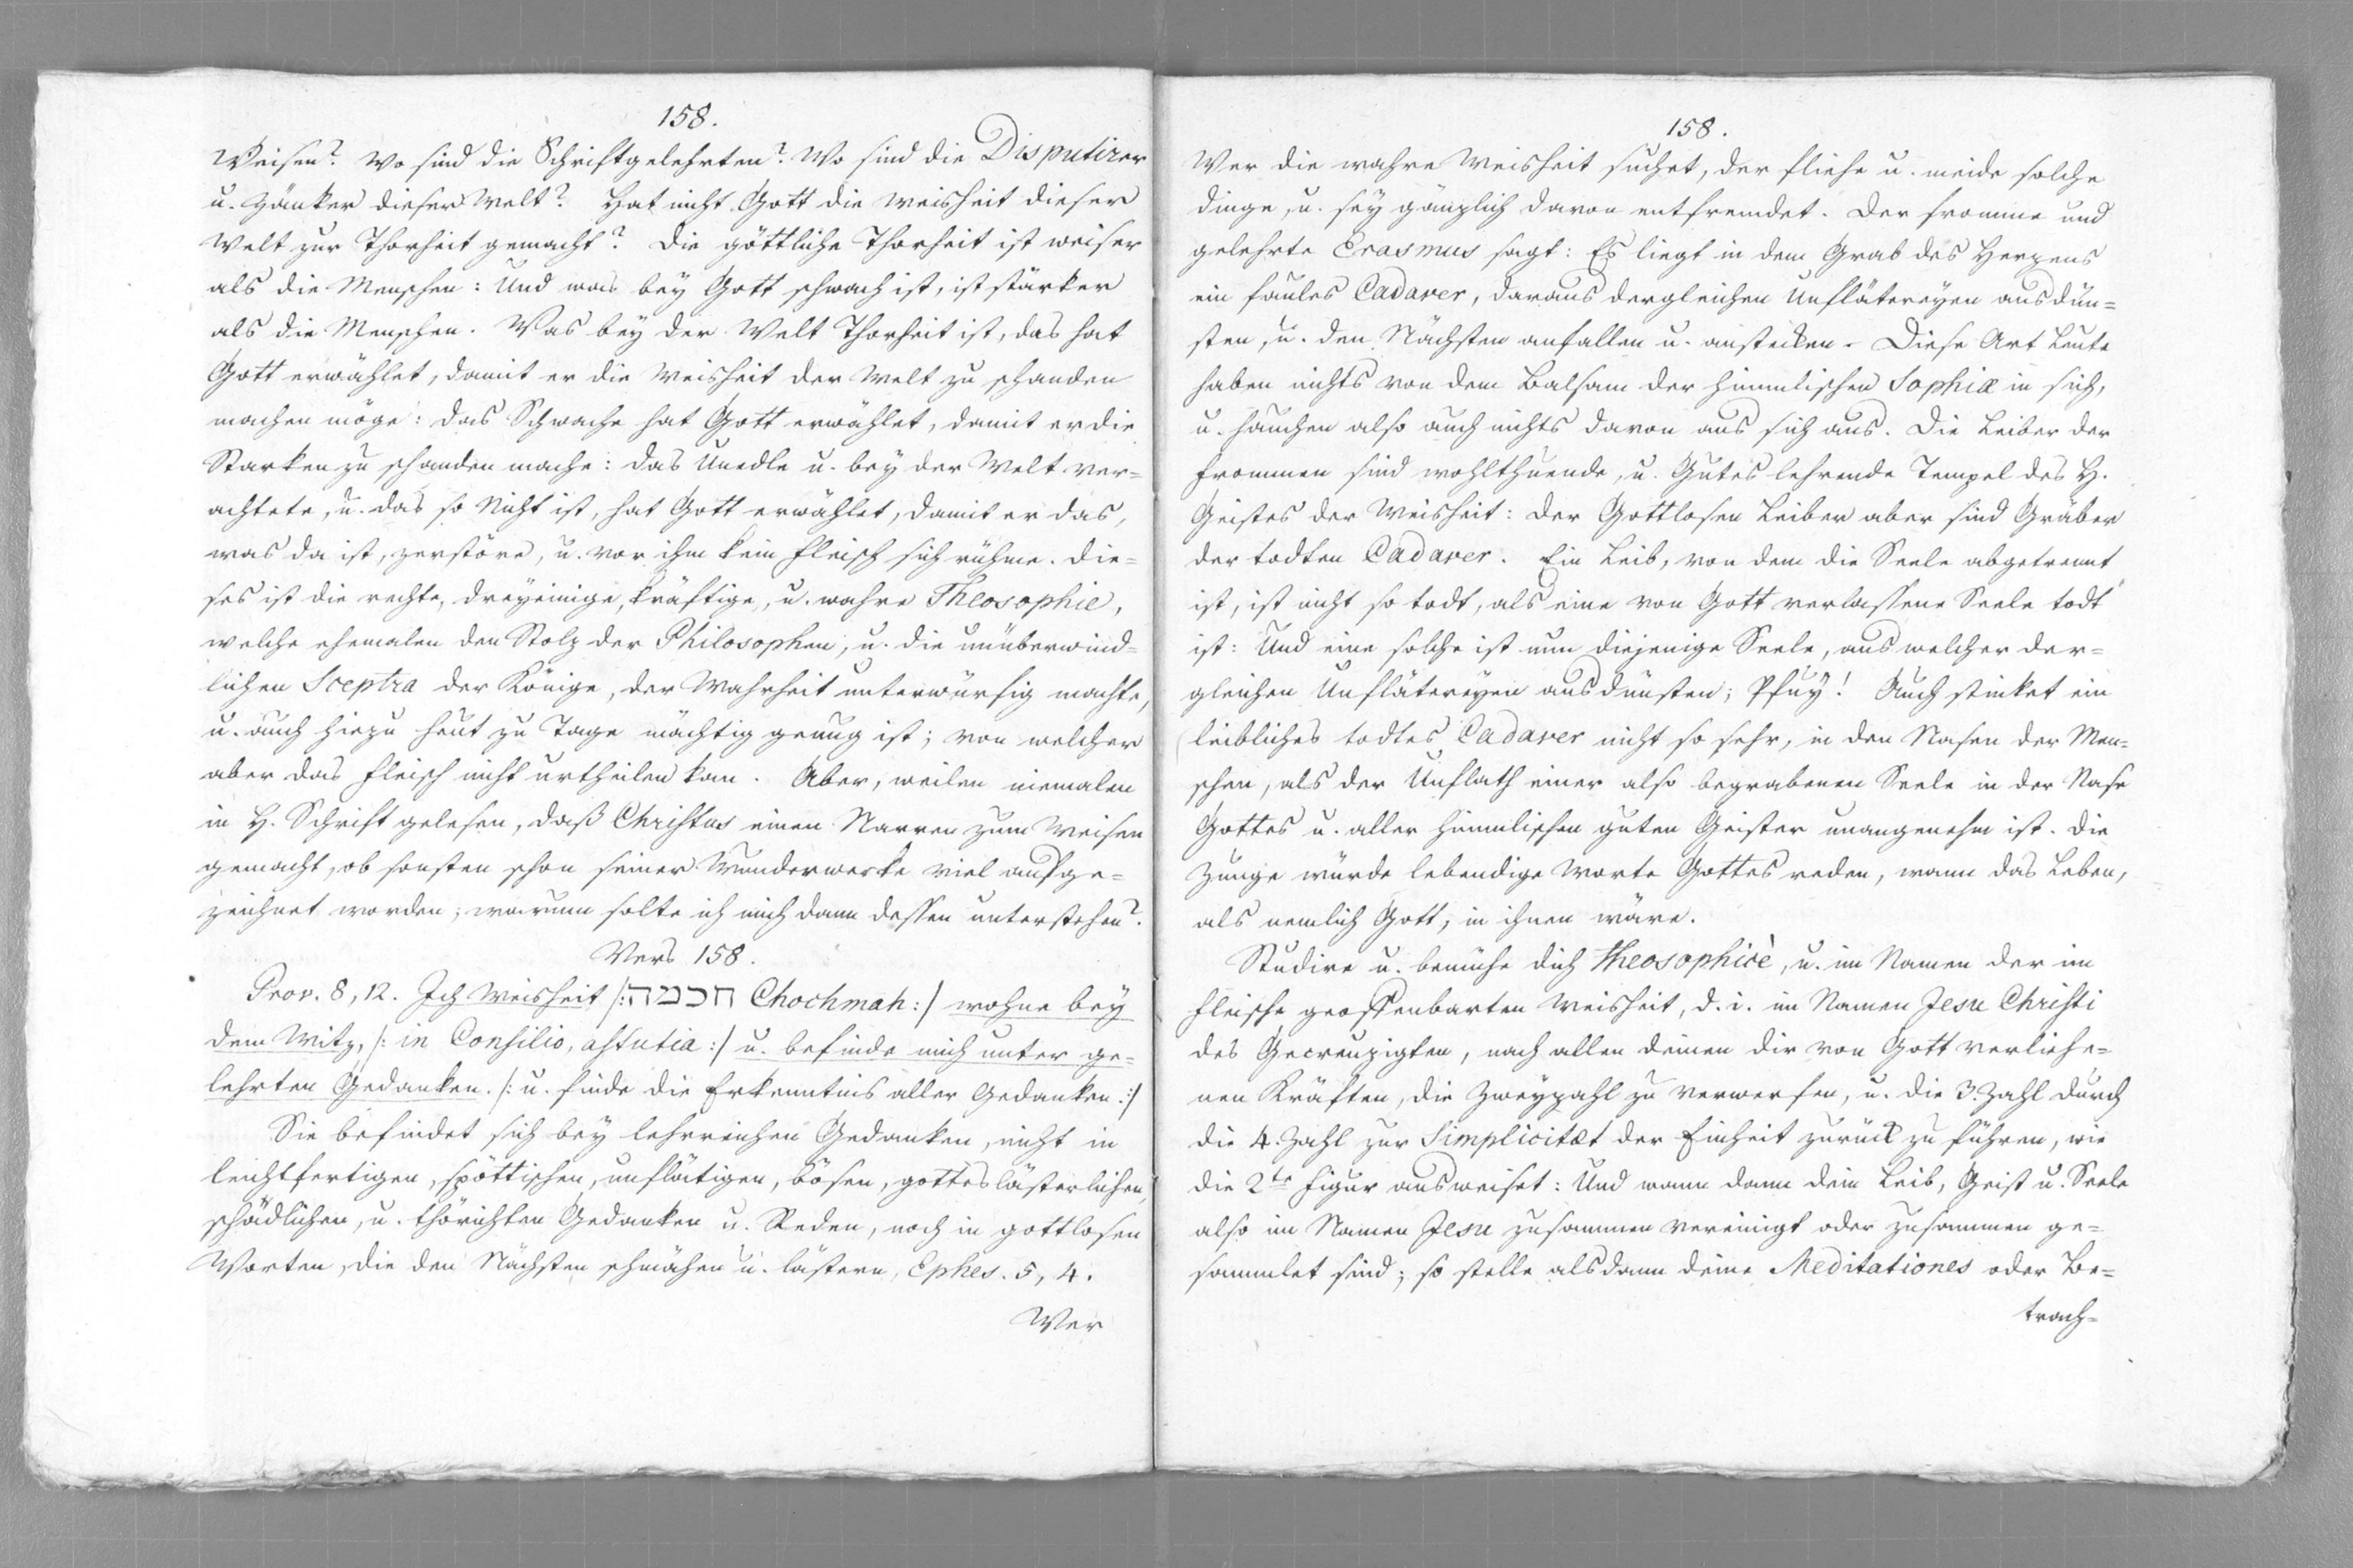 158.
Weisen? Wo sind die Schriftgelehrten? Wo sind die Disputirer
u. Zänker dieser Welt? Hat nicht Gott die Weisheit dieser
Welt zur Thorheit gemacht? Die göttliche Thorheit ist weiser
als die Menschen: Und was bey Gott schwach ist, ist stärker
als die Menschen. Was bey der Welt Thorheit ist, das hat
Gott erwählet, damit er die Weisheit der Welt zu schanden
machen möge: das Schwache hat Gott erwählet, damit er die
Starken zu schanden mache: das Unedle u. bey der Welt ver=
achtete, u. das so Nicht ist, hat Gott erwählet, damit er das,
was da ist, zerstöre, u. vor ihm kein Fleisch sich rühme. Die=
ses ist die rechte, dreyeinige, kräftige, u. wahre Theosophie,
welche ehemalen den Stolz der Philosophen, u. die unüberwind=
lichen Sceptra der Könige, der Wahrheit unterwürfig machte,
u. auch hiezu heut zu Tage mächtig genug ist; von welcher
aber das Fleisch nicht urtheilen kan. Aber, weilen niemalen
in H. Schrift gelesen, daß Christus einen Narren zum Weisen
gemacht, ob sonsten schon seiner Wunderwerke viel aufge=
zeichnet worden; warum solte ich mich dann dessen unterstehen?
Vers 158.
Prov. 8, 12. Ich Weisheit /: חכמה Chochmah :/ wohne bey
dem Witz, /: in Consilio, astutia :/ u. befinde mich unter ge=
lehrten Gedanken. /: u. finde die Erkenntnis aller Gedanken. :/
Sie befindet sich bey lehrreichen Gedanken, nicht in
leichtfertigen, spöttischen, unflätigen, bösen, gotteslästerlichen,
schädlichen, u. thörichten Gedanken u. Reden, noch in gottlosen
Worten, die den Nächsten schmähen u. lästern, Ephes. 5, 4.
Wer
158.
Wer die wahre Weisheit suchet, der fliehe u. meide solche
Dinge, u. sey gänzlich davon entfremdet. Der fromme und
gelehrte Erasmus sagt: Es liegt in dem Grab des Herzens
ein faules Cadaver, daraus dergleichen Unflätereyen ausdün=
sten, u. den Nächsten anfallen u. anstecken. Diese Art Leute
haben nichts von dem Balsam der himmlischen Sophiæ in sich,
u. hauchen also auch nichts davon aus sich aus. Die Leiber der
Frommen sind wohlthuende, u. Gutes lehrende Tempel des H.
Geistes der Weisheit: der Gottlosen Leiber aber sind Gräber
der todten Cadaver. Ein Leib, von dem die Seele abgetrennt
ist, ist nicht so todt, als eine von Gott verlassene Seele todt
ist: Und eine solche ist nun diejenige Seele, aus welcher der=
gleichen Unflätereyen ausdünsten; Pfuy! Auch stinket ein
leibliches todtes Cadaver nicht so sehr, in den Nasen der Men=
schen, als der Unflath einer also begrabenen Seele in der Nase
Gottes u. aller himmlischen guten Geister unangenehm ist. Die
Zunge würde lebendige Worte Gottes reden, wann das Leben,
als nemlich Gott, in ihnen wäre.
Studire u. bemühe dich theosophicè, u. im Namen der im
Fleische geoffenbarten Weisheit, d. i. im Namen Jesu Christi
des Gecreuzigten, nach allen deinen dir von Gott verliehe=
nen Kräften, die Zweyzahl zu verwerfen, u. die 3. Zahl durch
die 4. Zahl zur Simplicitæt der Einheit zurück zu führen, wie
die 2te Figur ausweiset: Und wann dann dein Leib, Geist u. Seele
also im Namen Jesu zusammen vereinigt oder zusammen ge=
sammlet sind; so stelle alsdann deine Meditationes oder Be=
trach=